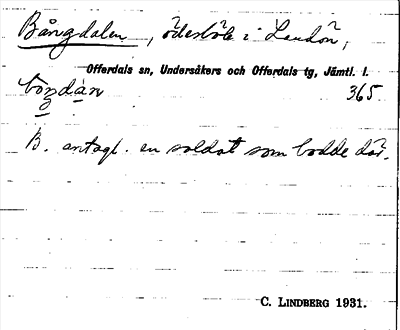 Bångdalen, ödesböle i Landön,
Offerdals sn, Undersåkers och Offerdals tg, Jämtl. l.
365.
B. antagl. en soldat som bodde där.
C. LINDBERG 1931.